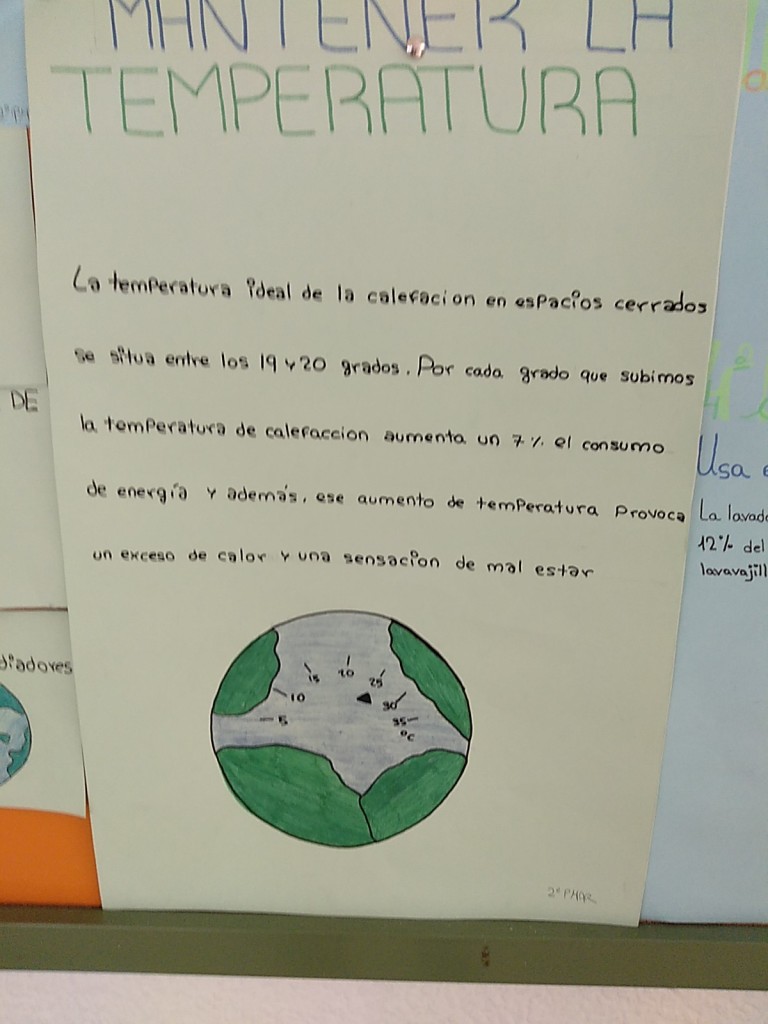 MANTENER LA
TEMPERATURA
La temperatura ideal de la calefacion en espacios cerrados
se situa entre los 19 y 20 grados. Por cada grado que subimos
la temperatura de calefaccion aumenta un 7% el consumo
de energía y además, ese aumento de temperatura provoca
un exceso de calor y una sensacion de mal estar
5
10
15
20
25
30
35
°C
2º PMAR
DE
diadores
4º
Usa e
La lavado
12% del
lavavajill